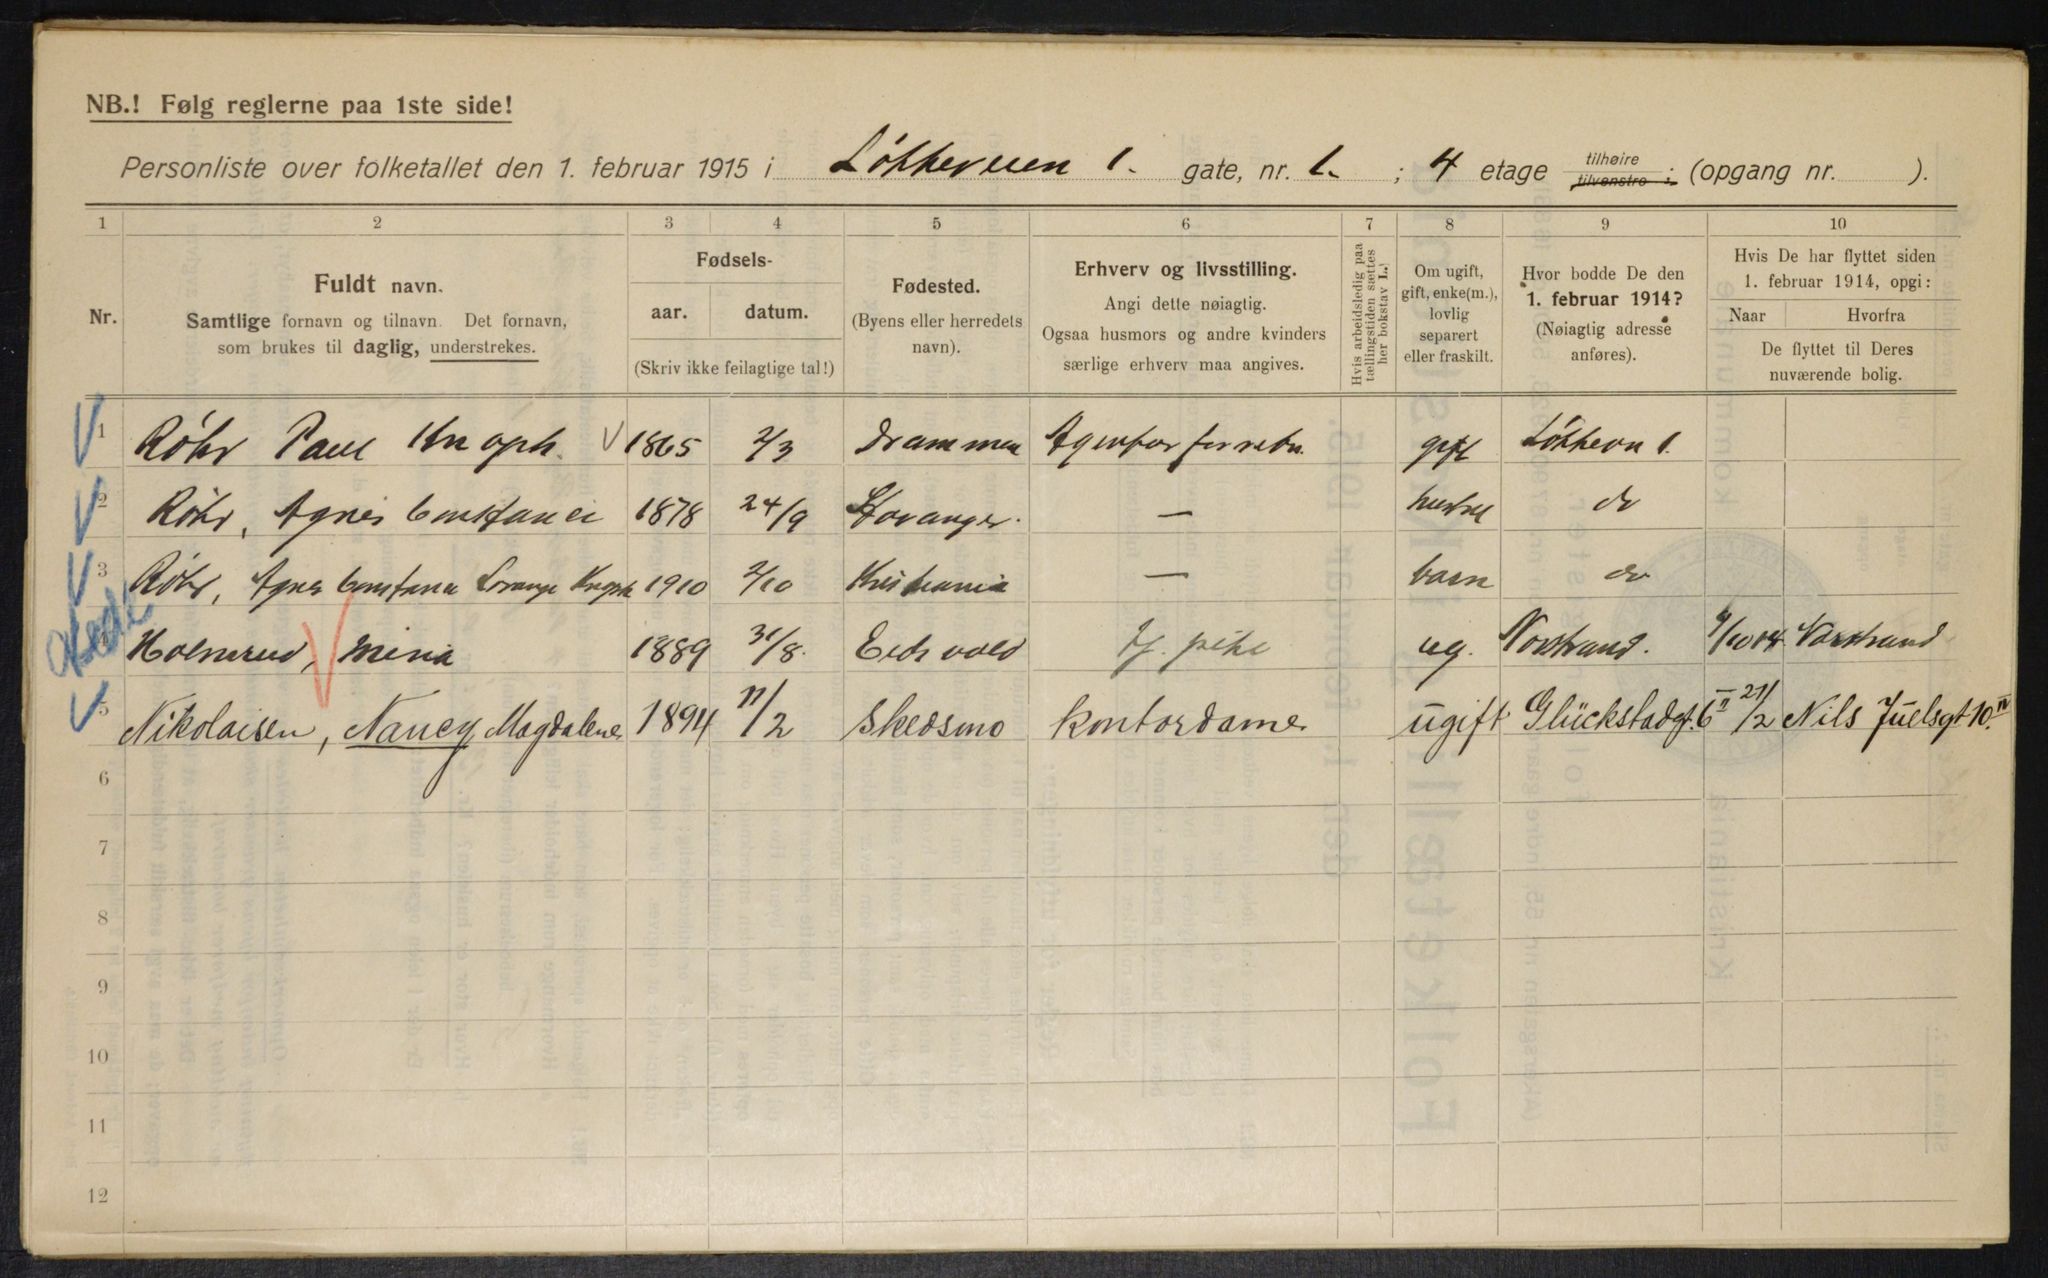 NB.! Følg reglerne paa 1ste side!
Personliste over folketallet den 1. februar 1915 i Løkkeveien 1. gate, nr. 1. ; 4 etage tilhøire tilvenstre ; (opgang nr. ).
1 2 3 4 5 6 7 8 9 10
Nr.
Fuldt navn.
Samtlige fornavn og tilnavn. Det fornavn,
som brukes til daglig, understrekes.
Fødsels-
aar. datum.
(Skriv ikke feilagtige tal!)
Fødested.
(Byens eller herredets
navn).
Erhverv og livsstilling.
Angi dette nøiagtig.
Ogsaa husmors og andre kvinders
særlige erhverv maa angives.
Hvis arbeidsledig paa
tællingstiden sættes
her bokstav L.
Om ugift,
gift, enke(m.),
lovlig
separert
eller fraskilt.
Hvor bodde De den
1. februar 1914?
(Nøiagtig adresse
anføres).
Hvis De har flyttet siden
1. februar 1914, opgi:
Naar Hvorfra
De flyttet til Deres
nuværende bolig.
1 Røhr Paul Knoph. 1865 2/3 Drammen gift 1.
2 Røhr, Agnes Constance 1878 24/9 Stavanger. — hustru do
3 Røhr, Agnes Constance Knoph 1910 2/10 Kristiania — barn do
4 Holmsrud, Mina 1889 31/8. Eidsvold Tj. pike ug. Nordstrand. Nordstrand
5 Nikolaisen, Nancy Magdalene 1894 11/2 Skedsmo Kontordame ugift Glückstadgt. 6 II 21/2 Nils Juelsgt 10. IV
6
7
8
9
10
11
12